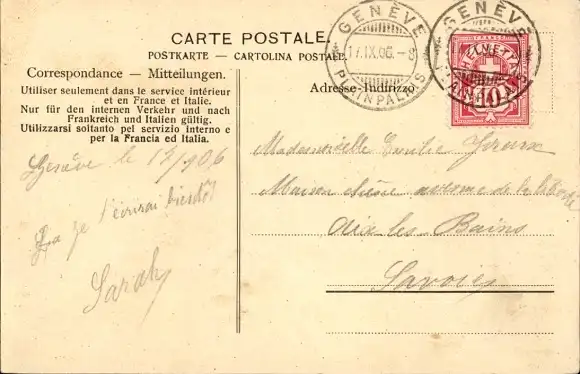 CARTE POSTALE
POSTKARTE — CARTOLINA POSTALE
Correspondance — Mitteilungen.
Utiliser seulement dans le service intérieur
et en France et Italie.
Nur für den internen Verkehr und nach
Frankreich und Italien gültig.
Utilizzarsi soltanto pel servizio interno e
per la Francia ed Italia.
Adresse-Indirizzo
GENÈVE
17.IX.06.-8
PLAINPALAIS
GENÈVE
HELVETIA
10
Genève le 17/906
je t'écrirai bientôt
Sarah
Mademoiselle Emilie
Maison avenue de la liberté
Aix les Bains
Savoie